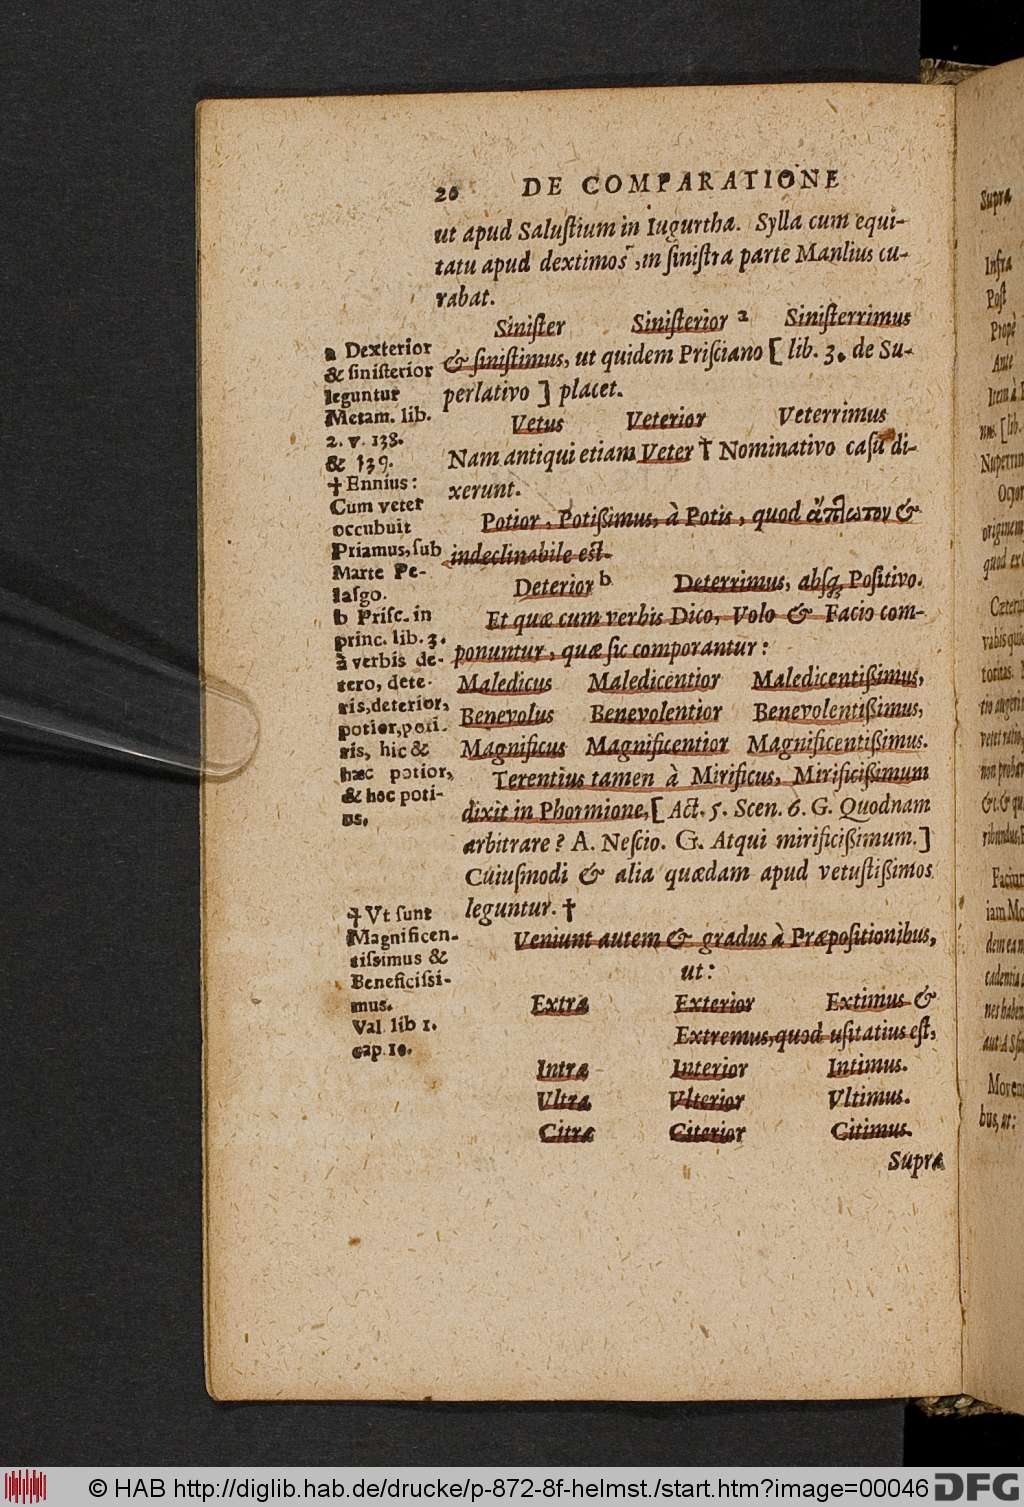 20 DE COMPARATIONE
ut apud Saluſtium in Iugurtha. Sylla cum equi-
tatu apud dextimos, in ſiniſtra parte Manlius cu-
rabat.
Siniſter Siniſterior a Siniſterrimus
& ſiniſtimus, ut quidem Priſciano [ lib. 3. de Su-
perlativo ] placet.
Vetus Veterior Veterrimus
Nam antiqui etiam Veter † Nominativo caſu di-
xerunt.
Potior, Potißimus, à Potis, quod ἄπτωτον &
indeclinabile eſt.
Deterior b Deterrimus, abſq; Poſitivo.
Et quæ cum verbis Dico, Volo & Facio com-
ponuntur, quæ ſic comporantur:
Maledicus Maledicentior Maledicentißimus,
Benevolus Benevolentior Benevolentißimus,
Magnificus Magnificentior Magnificentißimus.
Terentius tamen à Mirificus, Mirificißimum
dixit in Phormione, [ Act. 5. Scen. 6. G. Quodnam
arbitrare? A. Neſcio. G. Atqui mirificißimum. ]
Cuiuſmodi & alia quædam apud vetuſtißimos
leguntur. †
Veniunt autem & gradus à Præpoſitionibus,
ut:
Extra Exterior Extimus &
Extremus, quod uſitatius eſt,
Intra Interior Intimus.
Ultra Ulterior Vltimus.
Citra Citerior Citimus.
Supra
a Dexterior
& ſiniſterior
leguntur
Metam. lib.
2. v. 138.
& 139.
† Ennius:
Cum veter
occubuit
Priamus, ſub
Marte Pe-
laſgo.
b Priſc. in
princ. lib. 3.
à verbis de-
tero, dete-
ris, deterior,
potior, poti-
ris, hic &
hæc potior,
& hoc poti-
us.
† Vt ſunt
Magnificen-
tiſsimus &
Beneficiſsi-
mus.
Val. lib 1.
cap. 10.
Supra
Infra
Poſt
Propè
Ante
© HAB http://diglib.hab.de/drucke/p-872-8f-helmst./start.htm?image=00046
DFG